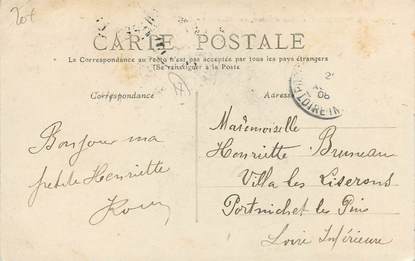 20f
CARTE POSTALE
La Correspondance au recto n'est pas acceptée par tous les pays étrangers
(Se renseigner à la Poste)
Correspondance
Adresse
Bonjour ma
petite Henriette
Mademoiselle
Henriette Bruneau
Villa les Liserons
Pornichet les Pins
Loire Inférieure